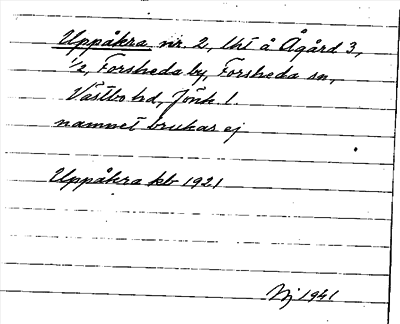 Uppåkra nr. 2, lht å Ågård 3,
1/2, Forsheda by, Forsheda sn,
Västbo hd, Jönk l.
namnet brukas ej
Uppåkra kb 1921
Nj 1941